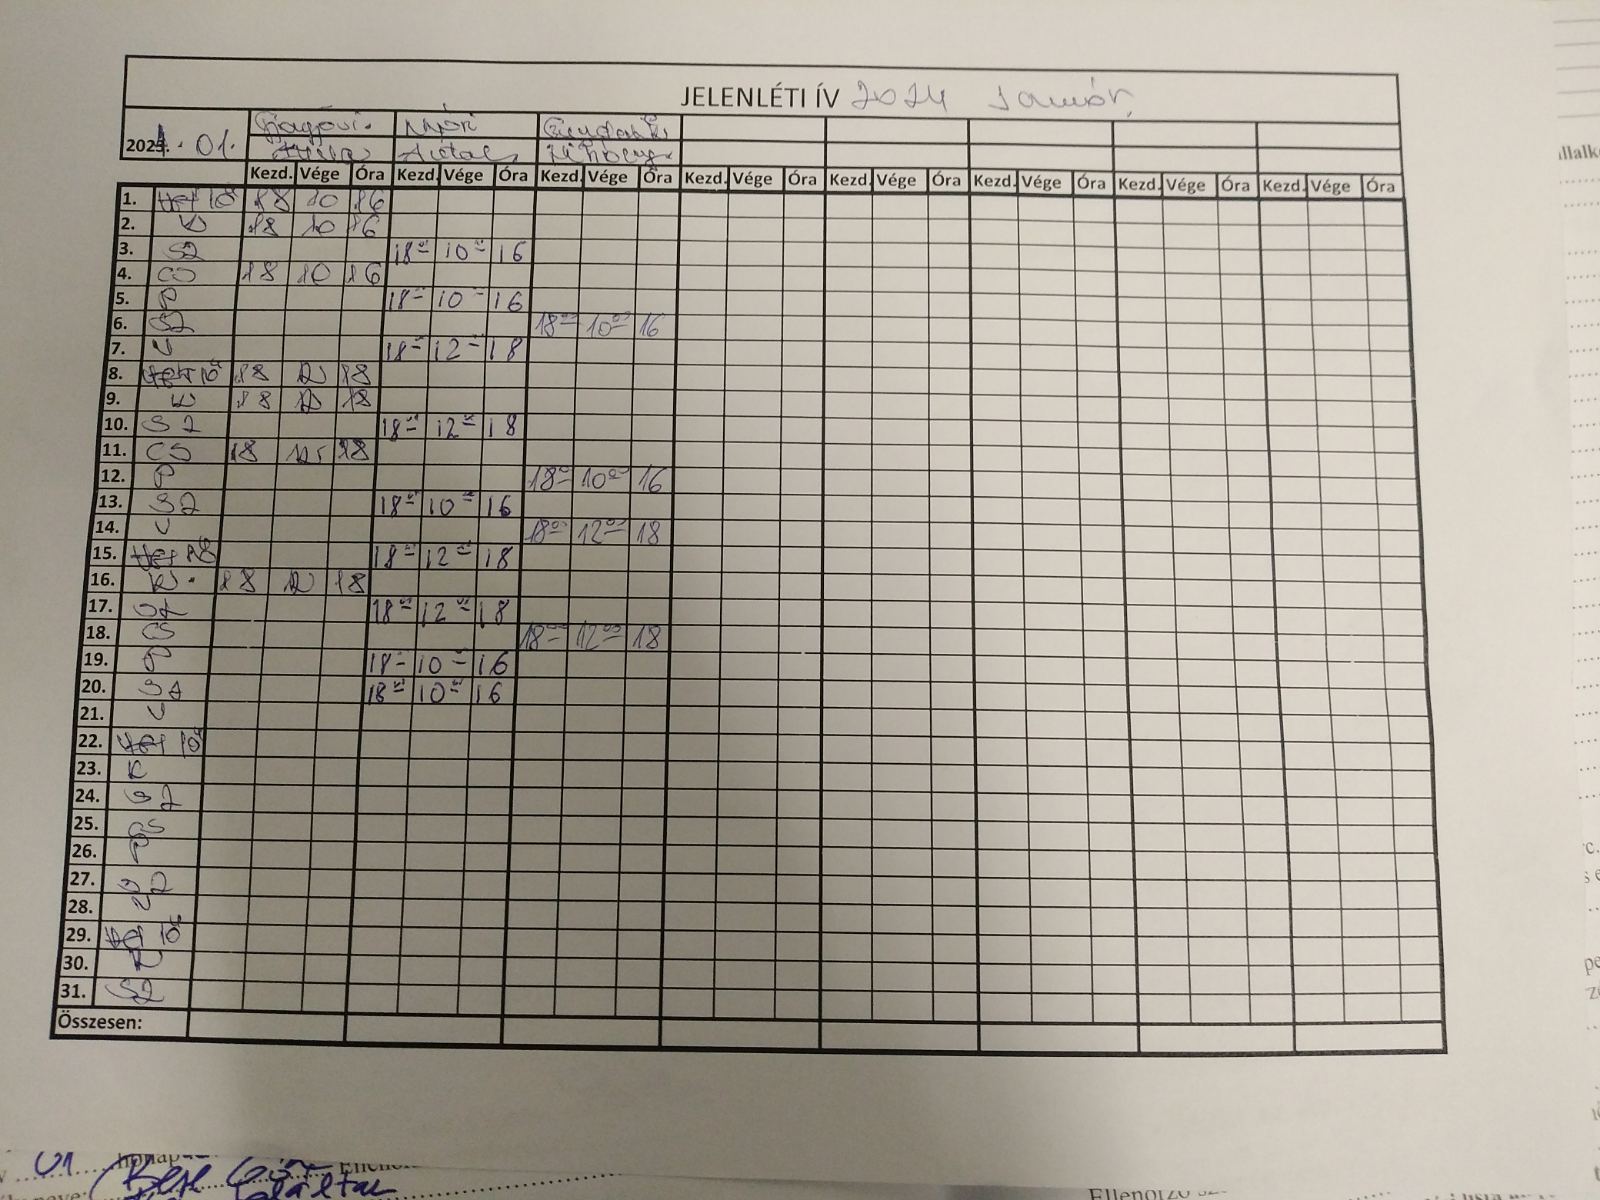 JELENLÉTI ÍV 2024 Január
2024. 01. Nyári
Attila Antal
Kezd. Vége Óra Kezd. Vége Óra Kezd. Vége Óra Kezd. Vége Óra Kezd. Vége Óra Kezd. Vége Óra Kezd. Vége Óra Kezd. Vége Óra
1. Hét fő 18 10 16
2. K 18 10 16
3. SZ 18 10 16
4. CS 18 10 16
5. P 18 10 16
6. SZ 18 10 16
7. V 18 12 18
8. Hét fő 18 12 18
9. K 18 12 18
10. SZ 18 12 18
11. CS 18 12 18
12. P 18 10 16
13. SZ 18 10 16
14. V 18 12 18
15. Hét fő 18 12 18
16. K 18 12 18
17. SZ 18 12 18
18. CS 18 12 18
19. P 18 10 16
20. SZ 18 10 16
21. V
22. Hét fő
23. K
24. SZ
25. CS
26. P
27. SZ
28.
29. Hét fő
30. K
31. SZ
Összesen:
01 hónap